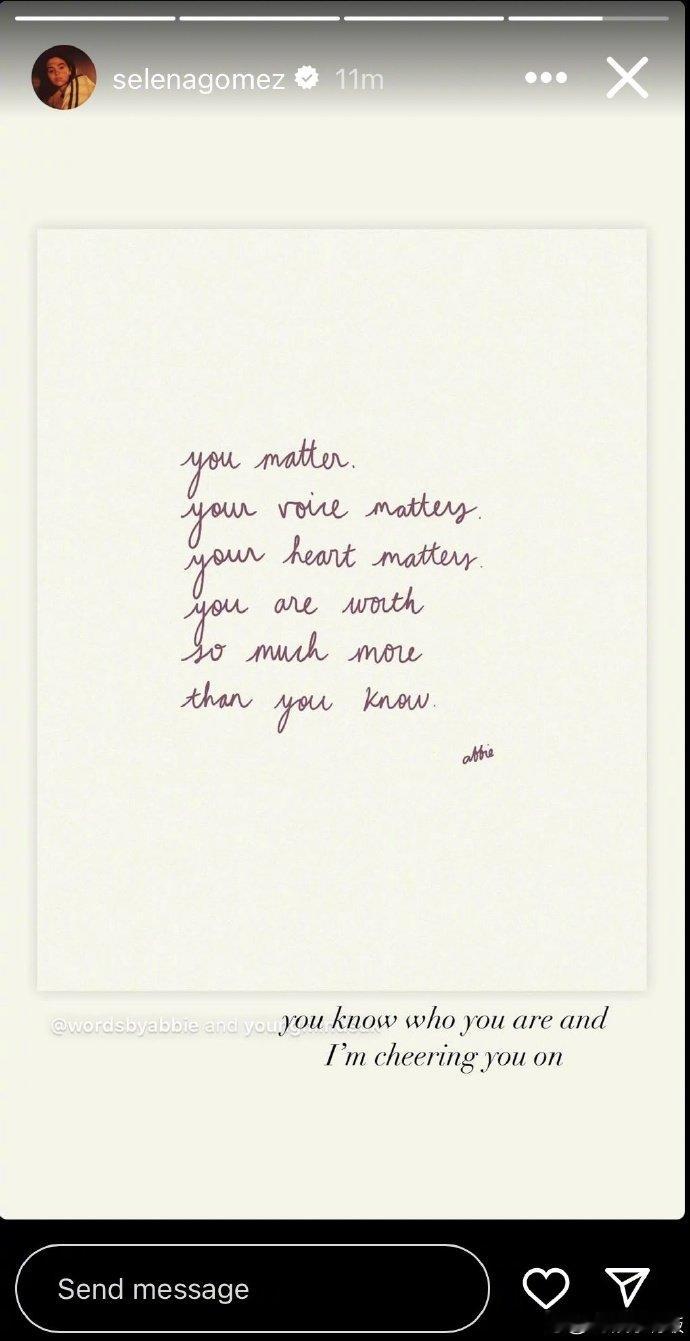 selenagomez 11m
you matter.
your voice matters.
your heart matters.
you are worth
so much more
than you know.
abbie
@wordsbyabbie and
you know who you are and
I'm cheering you on
Send message